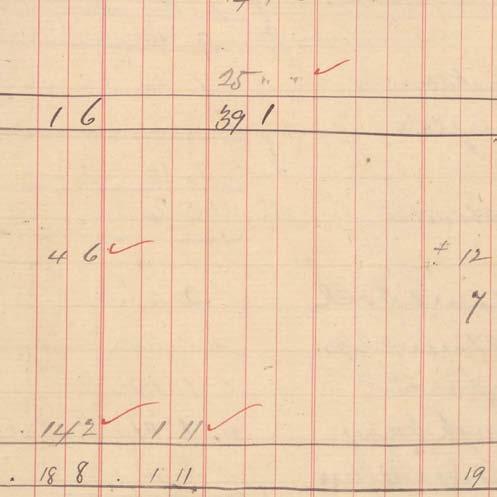 25 " "
1 6 39 1
4 6 + 12
7
14 2 1 11
. 18 8 . 1 11 19